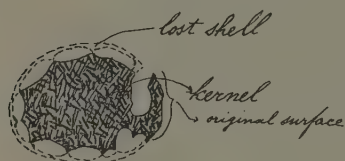 lost shell
kernel
original surface